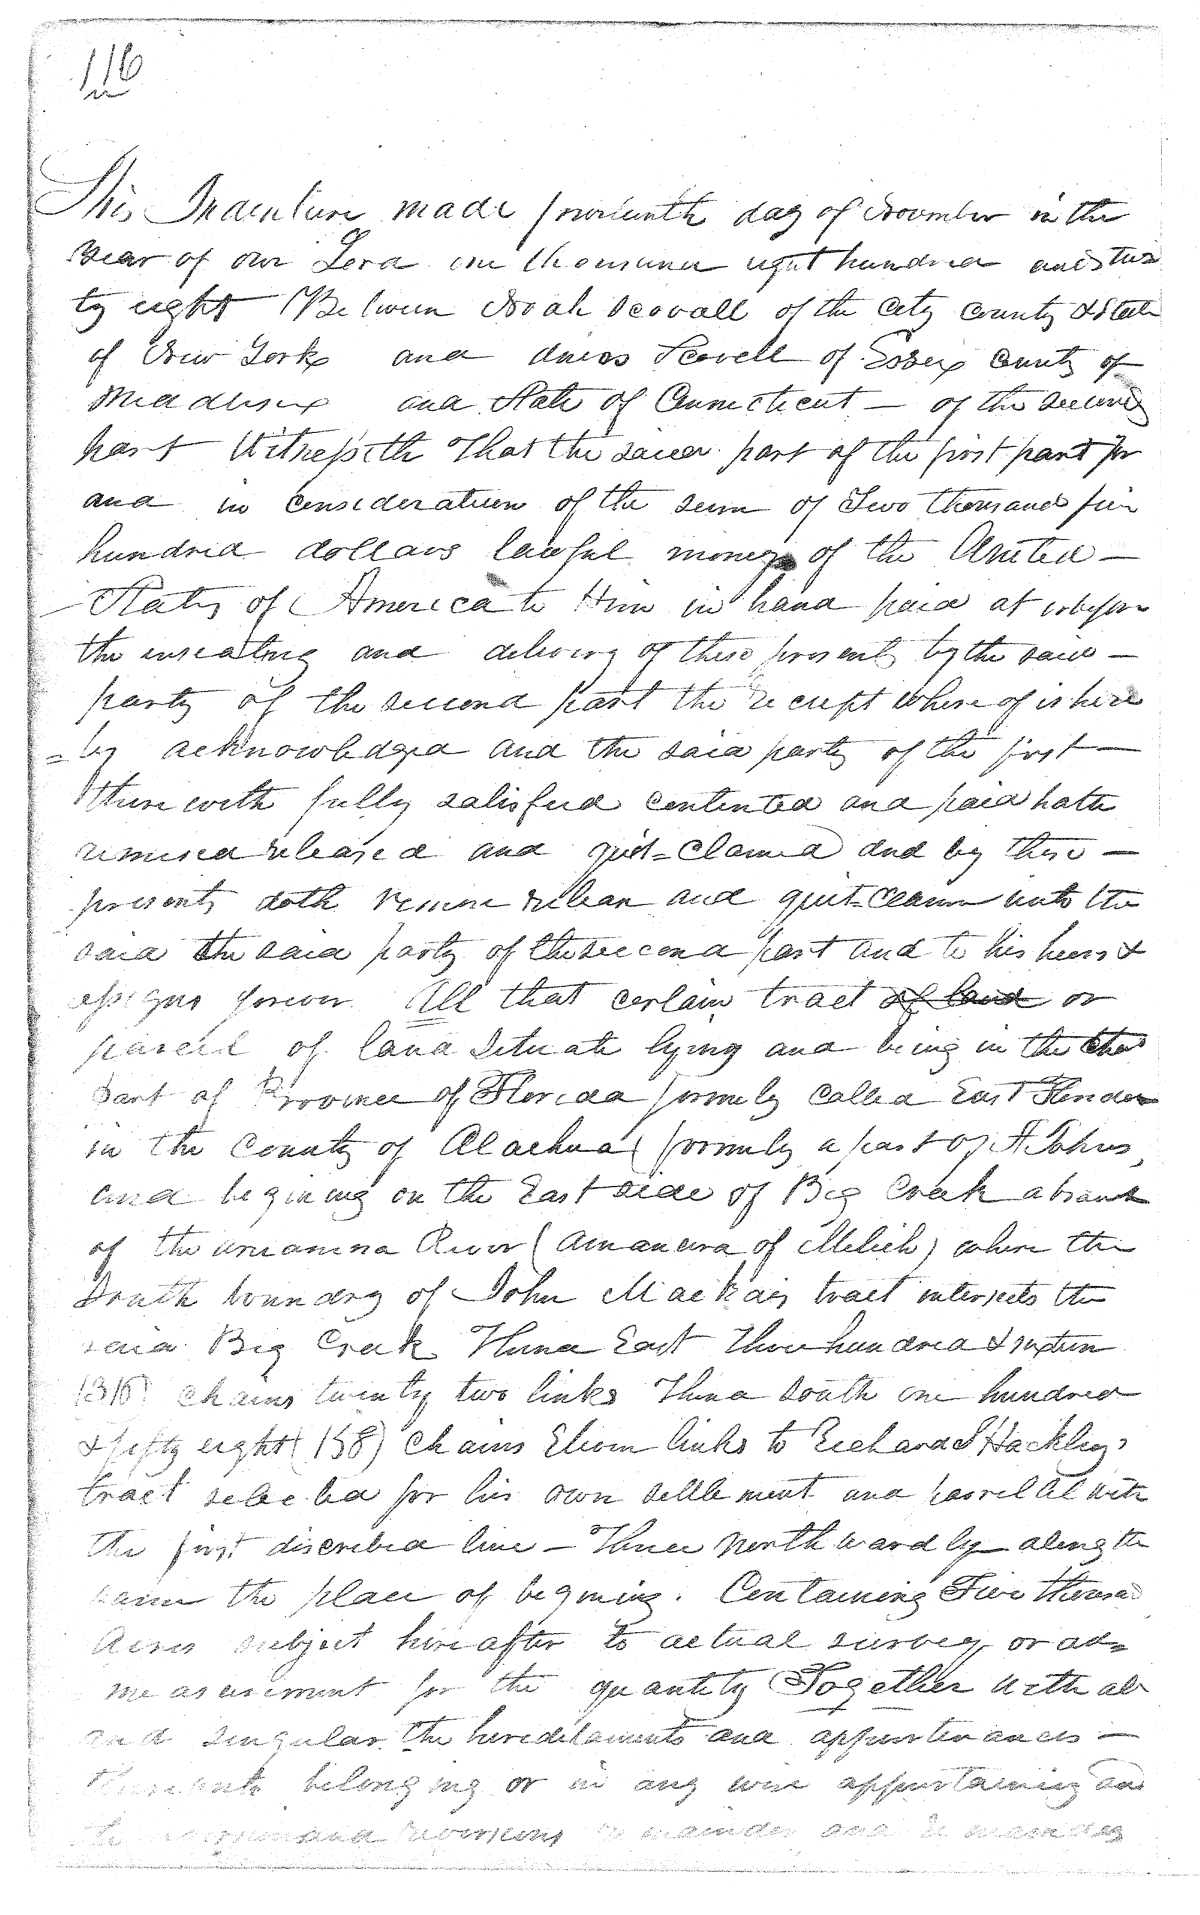 116
This Indenture made fourteenth day of November in the
year of our Lord one thousand eight hundred and twen
ty eight Between Noah Scovall of the City County & State
of New York and Scovell of Essex County of
Middlesex and State of Connecticut — of the second
part Witnesseth That the said part of the first part for
and in consideration of the sum of Two thousand five
hundred dollars lawful money of the United —
States of America to Him in hand paid at or before
the ensealing and delivery of these presents by the said —
party of the second part the receipt where of is here
= by acknowledged and the said party of the first —
therewith fully satisfied contented and paid hath
remised released and quit=Claimed and by these —
presents doth remise release and quit=Claim unto the
said the said party of the second part and to his heirs &
assigns forever All that certain tract of land or
parcel of land Situate lying and being in the
part of Province of Florida formely called East Florida
in the County of Alachua (formely a part of St Johns
and begining on the East side of Big Creek a branch
of the River (Amanura of ) where the
South boundary of John Mackays tract intersects the
said Big Creek Thence East Three hundred & sixteen
(316) chains twenty two links Thence South one hundred
& fifty eight (158) Chains Eleven links to Richard S Hackleys
tract selected for his own settlement and parrellal with
the first discribed line — Thence Northwardly along the
same the place of begining. Containing Five thousand
Acres subject hereafter to actual survey or ad=
measurement for the quantity Together with all
and singular the hereditaments and appurtenances —
thereunto belonging or in any wise appertaining and
the reversion and reversions remainder and remainders